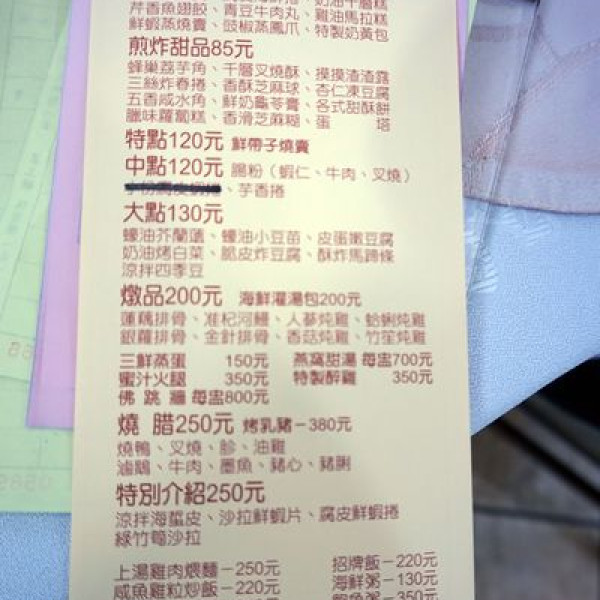 芹香魚翅餃、青豆牛肉丸、雞油馬拉糕
鮮蝦蒸燒賣、豉椒蒸鳳爪、特製奶黃包
煎炸甜品85元
蜂巢荔芋角、千層叉燒酥、摸摸渣渣露
三絲炸春捲、香酥芝麻球、杏仁凍豆腐
五香咸水角、鮮奶龜苓膏、各式甜酥餅
臘味蘿蔔糕、香滑芝麻糊、蛋 塔
特點120元 鮮帶子燒賣
中點120元 腸粉（蝦仁、牛肉、叉燒）
、芋香捲
大點130元
蠔油芥蘭薳、蠔油小豆苗、皮蛋嫩豆腐
奶油烤白菜、脆皮炸豆腐、酥炸馬蹄條
涼拌四季豆
燉品200元 海鮮灌湯包200元
蓮藕排骨、准杞河鰻、人蔘炖雞、蛤蜊炖雞
銀蘿排骨、金針排骨、香菇炖雞、竹笙炖雞
三鮮蒸蛋 150元 燕窩甜湯 每盅700元
蜜汁火腿 350元 特製醉雞 350元
佛 跳 牆 每盅800元
燒 腊250元 烤乳豬－380元
燒鴨、叉燒、肣、油雞
滷鵝、牛肉、墨魚、豬心、豬脷
特別介紹250元
涼拌海蜇皮、沙拉鮮蝦片、腐皮鮮蝦捲
綠竹筍沙拉
上湯雞肉煨麵－250元 招牌飯－220元
咸魚雞粒炒飯－220元 海鮮粥－130元
鮑魚粥－350元